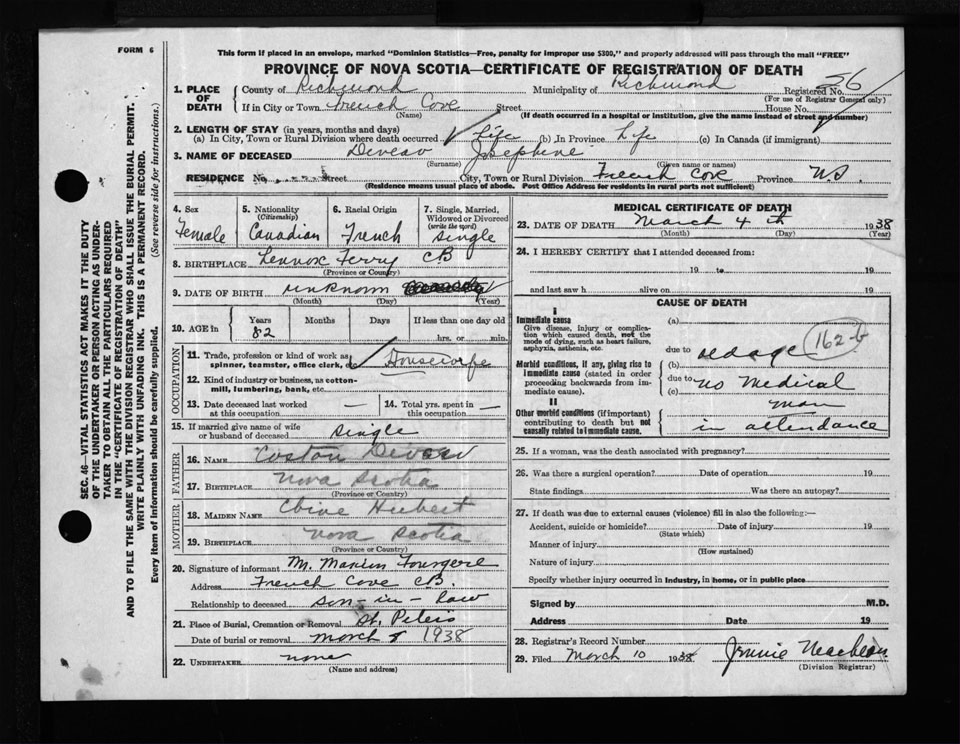 FORM 6
This form if placed in an envelope, marked "Dominion Statistics—Free, penalty for improper use $300," and properly addressed will pass through the mail "FREE"
PROVINCE OF NOVA SCOTIA—CERTIFICATE OF REGISTRATION OF DEATH
1. PLACE OF DEATH County of Richmond Municipality of Richmond Registered No. 36
(For use of Registrar General only)
If in City or Town French Cove Street House No.
(Name) (If death occurred in a hospital or institution, give the name instead of street and number)
2. LENGTH OF STAY (in years, months and days)
(a) In City, Town or Rural Division where death occurred Life (b) In Province Life (c) In Canada (if immigrant)
3. NAME OF DECEASED Deveav Josephine
(Surname) (Given name or names)
RESIDENCE No. Street City, Town or Rural Division French Cove Province N.S.
(Residence means usual place of abode. Post Office Address for residents in rural parts not sufficient)
4. Sex Female
5. Nationality (Citizenship) Canadian
6. Racial Origin French
7. Single, Married, Widowed or Divorced (write the word) single
8. BIRTHPLACE Lennox Ferry CB
(Province or Country)
9. DATE OF BIRTH unknown
(Month) (Day) (Year)
10. AGE in Years 82 Months Days If less than one day old hrs. or min.
OCCUPATION
11. Trade, profession or kind of work as spinner, teamster, office clerk, etc. Housewife
12. Kind of industry or business, as cotton-mill, lumbering, bank, etc.
13. Date deceased last worked at this occupation —
14. Total yrs. spent in this occupation —
15. If married give name of wife or husband of deceased single
FATHER
16. NAME Coston
17. BIRTHPLACE Nova Scotia
(Province or Country)
MOTHER
18. MAIDEN NAME Hubert
19. BIRTHPLACE Nova Scotia
(Province or Country)
20. Signature of informant M. Maxim Fourgere
Address French Cove CB.
Relationship to deceased son-in-law
21. Place of Burial, Cremation or Removal St. Peters
Date of burial or removal March 1938
22. UNDERTAKER none
(Name and address)
MEDICAL CERTIFICATE OF DEATH
23. DATE OF DEATH March 4th 1938
(Month) (Day) (Year)
24. I HEREBY CERTIFY that I attended deceased from:
19 to 19
and last saw h alive on 19
CAUSE OF DEATH
I
Immediate cause
Give disease, injury or complication which caused death, not the mode of dying, such as heart failure, asphyxia, asthenia, etc.
(a)
due to old age 162-b
Morbid conditions, if any, giving rise to immediate cause (stated in order proceeding backwards from immediate cause).
(b)
due to no medical
(c) man
II
Other morbid conditions (if important) contributing to death but not causally related to immediate cause.
in attendance
25. If a woman, was the death associated with pregnancy?
26. Was there a surgical operation? Date of operation 19
State findings Was there an autopsy?
27. If death was due to external causes (violence) fill in also the following:—
Accident, suicide or homicide? Date of injury 19
(State which)
Manner of injury
(How sustained)
Nature of injury
Specify whether injury occurred in industry, in home, or in public place
Signed by M.D.
Address Date 19
28. Registrar's Record Number
29. Filed March 10 1938 Jennie MacLean
(Division Registrar)
SEC. 46—VITAL STATISTICS ACT MAKES IT THE DUTY
OF THE UNDERTAKER OR PERSON ACTING AS UNDER-
TAKER TO OBTAIN ALL THE PARTICULARS REQUIRED
IN THE "CERTIFICATE OF REGISTRATION OF DEATH"
AND TO FILE THE SAME WITH THE DIVISION REGISTRAR WHO SHALL ISSUE THE BURIAL PERMIT.
WRITE PLAINLY WITH UNFADING INK. THIS IS A PERMANENT RECORD.
Every item of information should be carefully supplied. (See reverse side for instructions.)